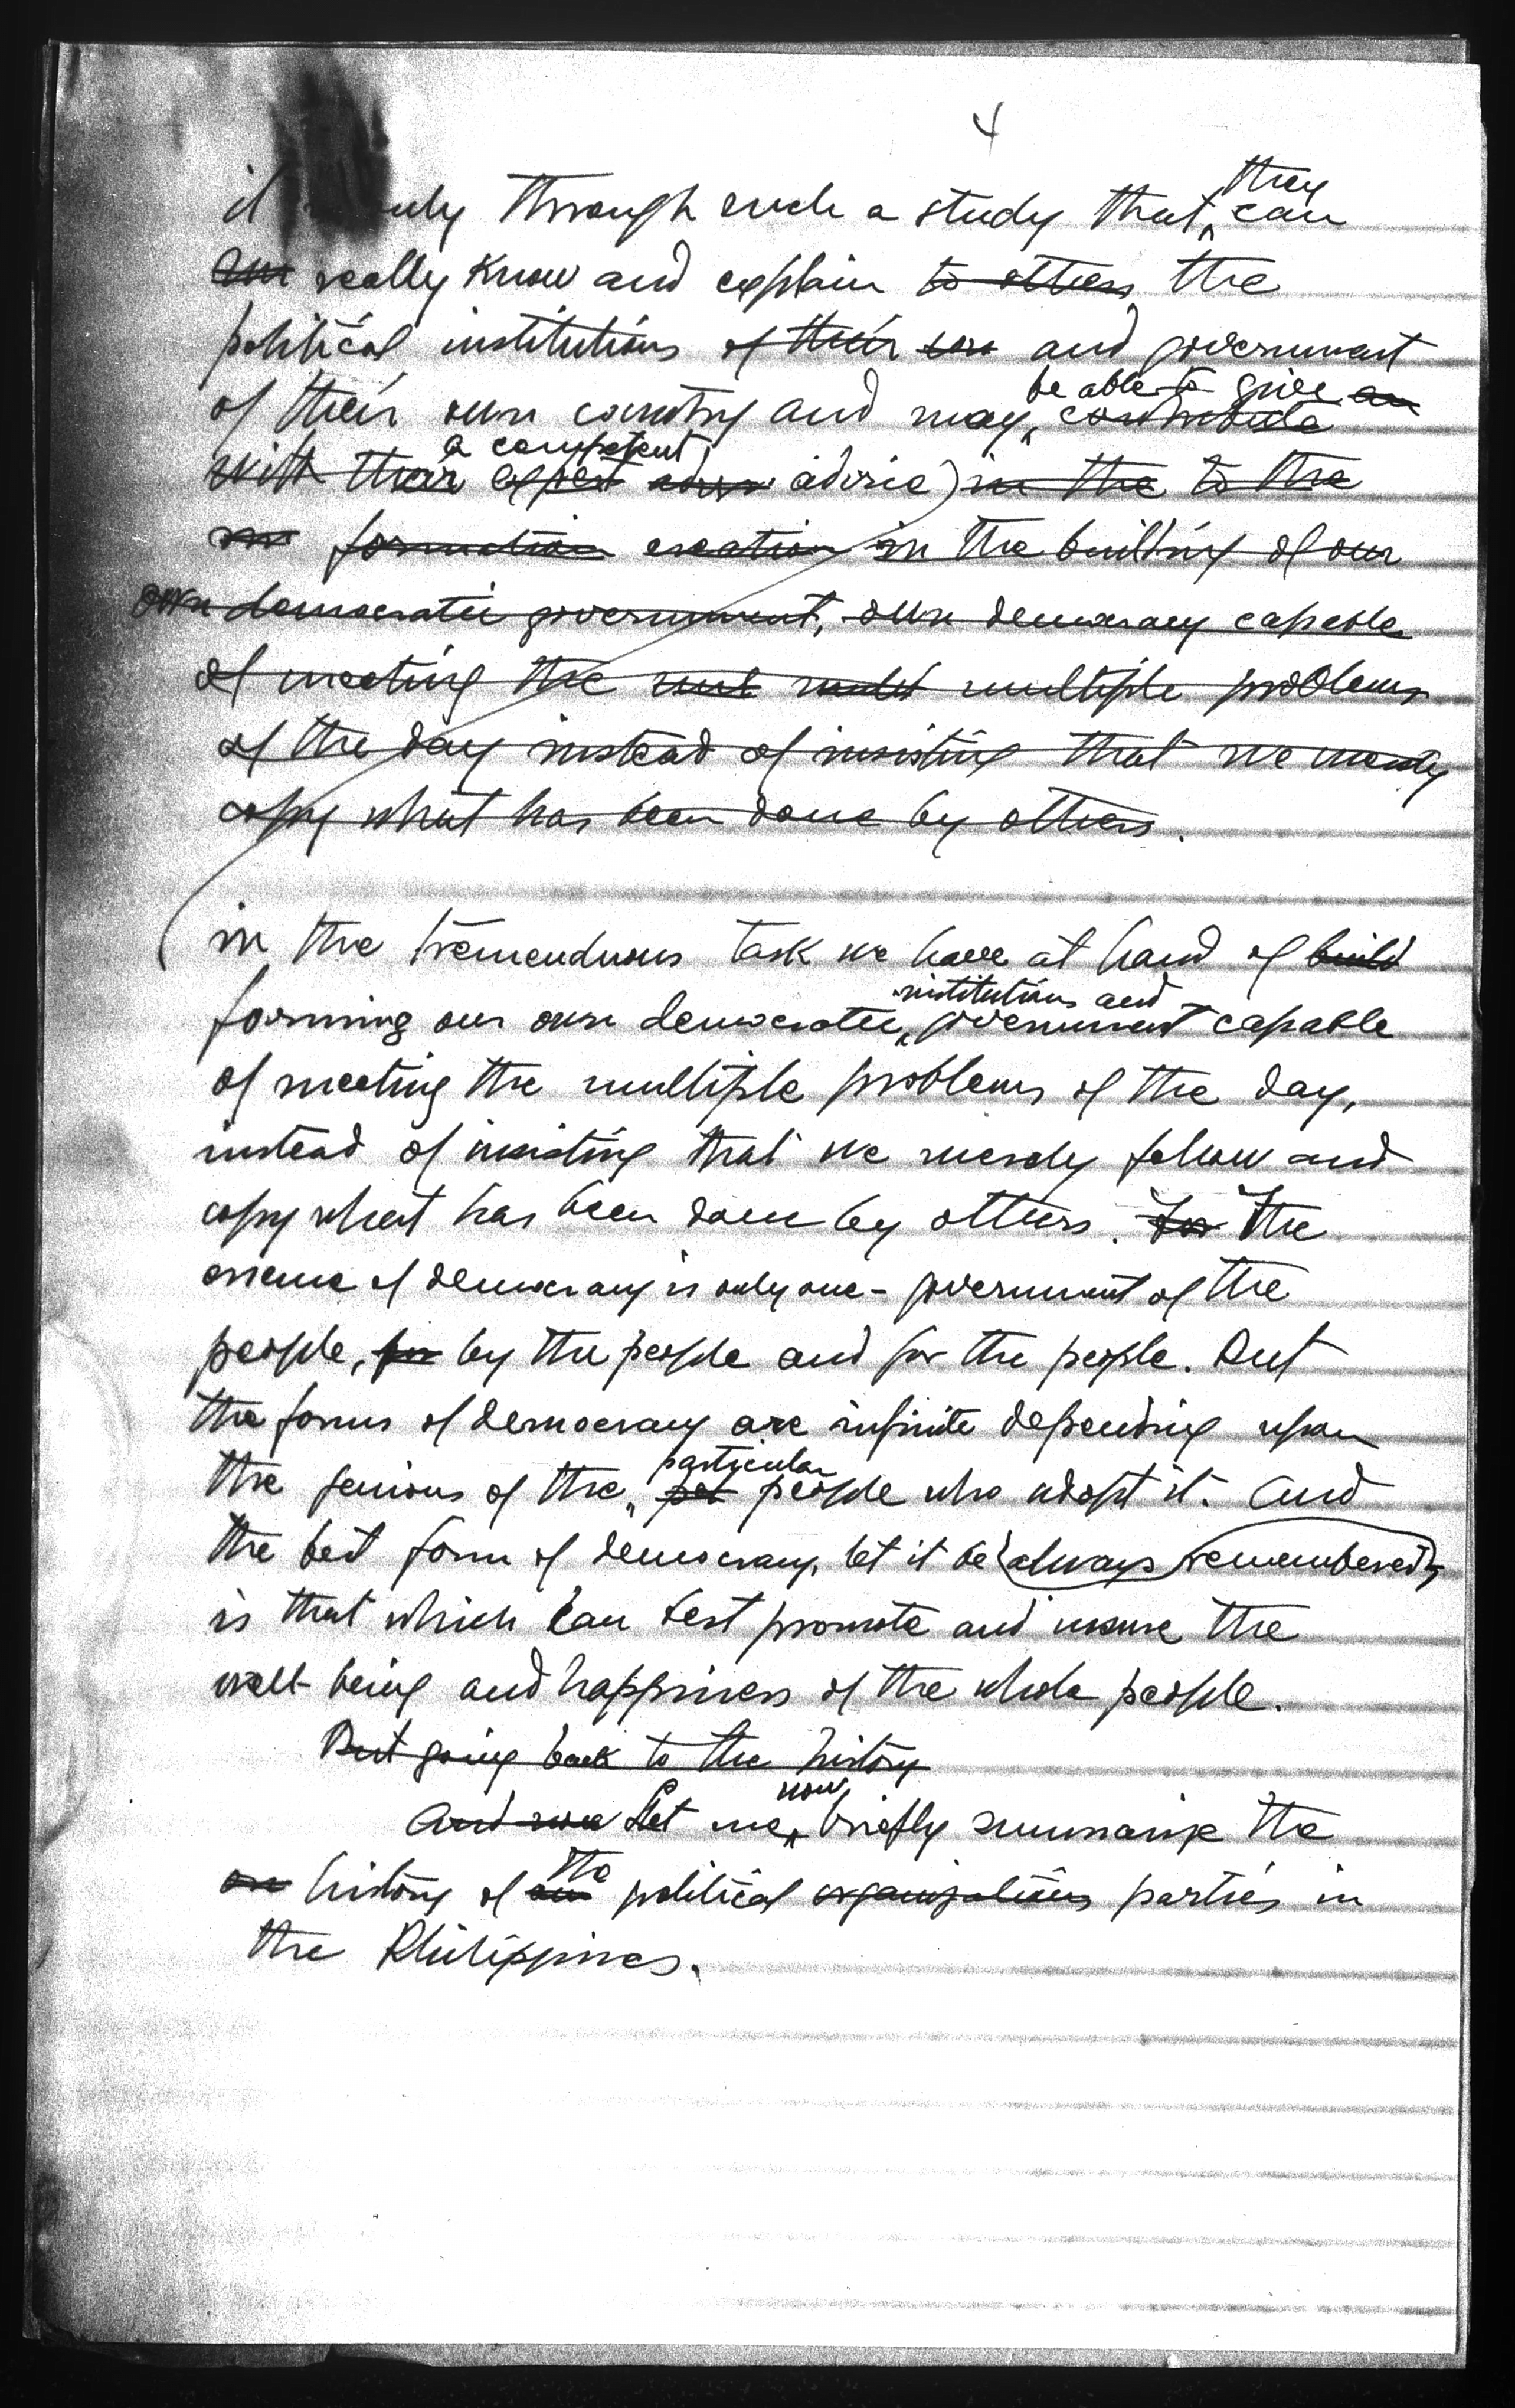 4
they
it only through such a study that can
our really know and explain to others the
political institutions of their own and government
be able to give an
of their own country and may contribute
a competent
with their expert advice in the to the
formation creation in the building of our
own democratic government, own democracy capable
of meeting the multiple problems
of the day instead of insisting that we merely
copy what has been done by others.
in the tremenduous task we have at hand of build
institutions and
forming our own democratic government capable
of meeting the multiple problems of the day,
instead of insisting that we merely follow and
copy what has been done by others. For The
essence of democracy is only one - government of the
people, for by the people and for the people. But
the forms of democracy are infinite depending upon
particular
the genious of the people who adopt it. And
the best form of democracy, let it be always remembered,
is that which can best promote and insure the
well-being and happiness of the whole people.
But going back to the history
now
And now Let me briefly summarize the
the
history of our political organizations parties in
the Philippines.